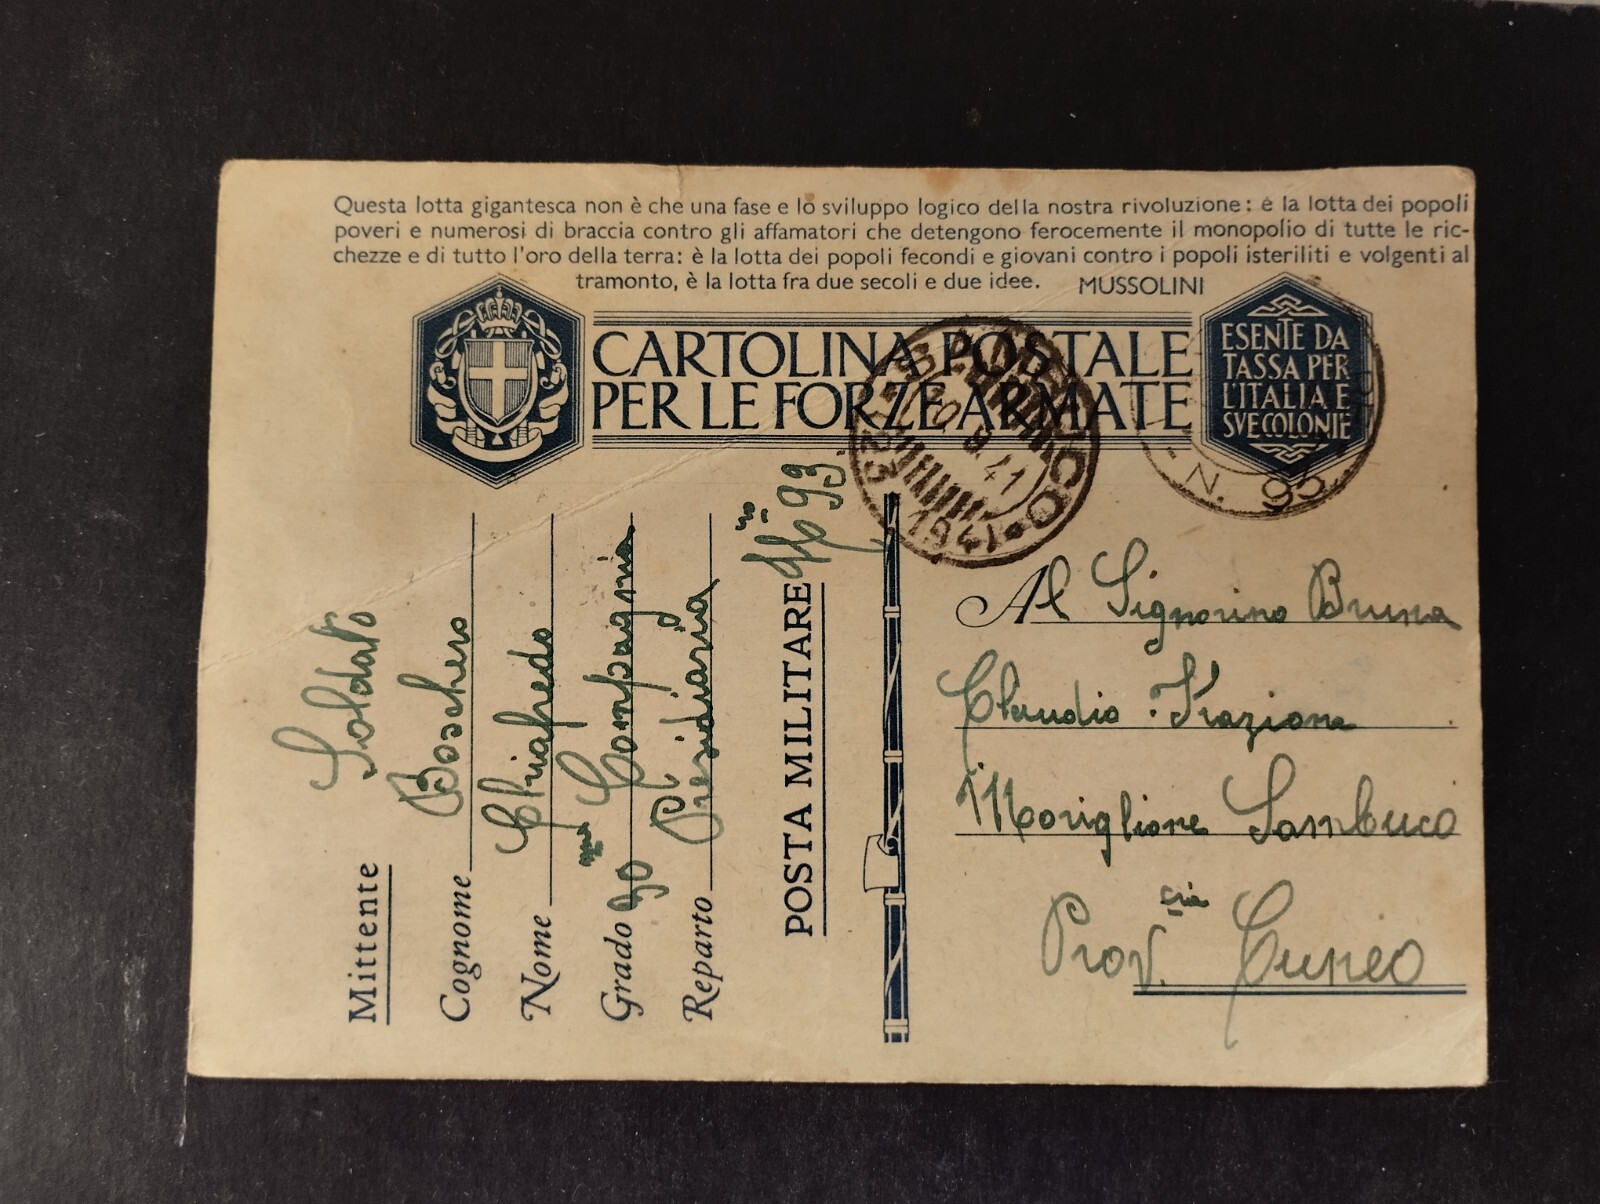 Questa lotta gigantesca non è che una fase e lo sviluppo logico della nostra rivoluzione: è la lotta dei popoli
poveri e numerosi di braccia contro gli affamatori che detengono ferocemente il monopolio di tutte le ric-
chezze e di tutto l'oro della terra: è la lotta dei popoli fecondi e giovani contro i popoli isteriliti e volgenti al
tramonto, è la lotta fra due secoli e due idee. MUSSOLINI
CARTOLINA POSTALE
PER LE FORZE ARMATE
ESENTE DA
TASSA PER
L'ITALIA E
SVE COLONIE
9 41
N. 93
Mittente Soldato
Cognome Boschero
Nome Chiafredo
Grado 90 Compagnia
Reparto Presidiaria
POSTA MILITARE 93
Al Signorino Bruna
Claudio Frazione
Moriglione Sambuco
Prov.cia Cuneo